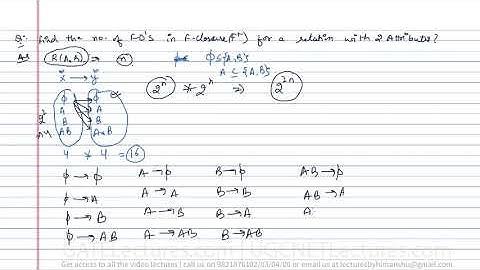 Q:- Find the no. of FD's in F-closure(F⁺) for a relation with 2 Attributes?
Ans R(A,B) ⇒ n
ϕ ⊆ {A,B}
A ⊆ {A,B}
x → y
2ⁿ * 2ⁿ ⇒ 2²ⁿ
ϕ ϕ
A A
B B
AB AB
4 * 4 = 16
ϕ → ϕ A → ϕ B → ϕ AB → ϕ
ϕ → A A → A B → B AB → A
ϕ → B A → B B → A A
ϕ → AB A → AB B → AB
GATELectures.com | UGCNETLectures.com
Get access to all the video lectures | call us on 9821876102/03/04/06 or email us at lecturesbyhimanshu@gmail.com